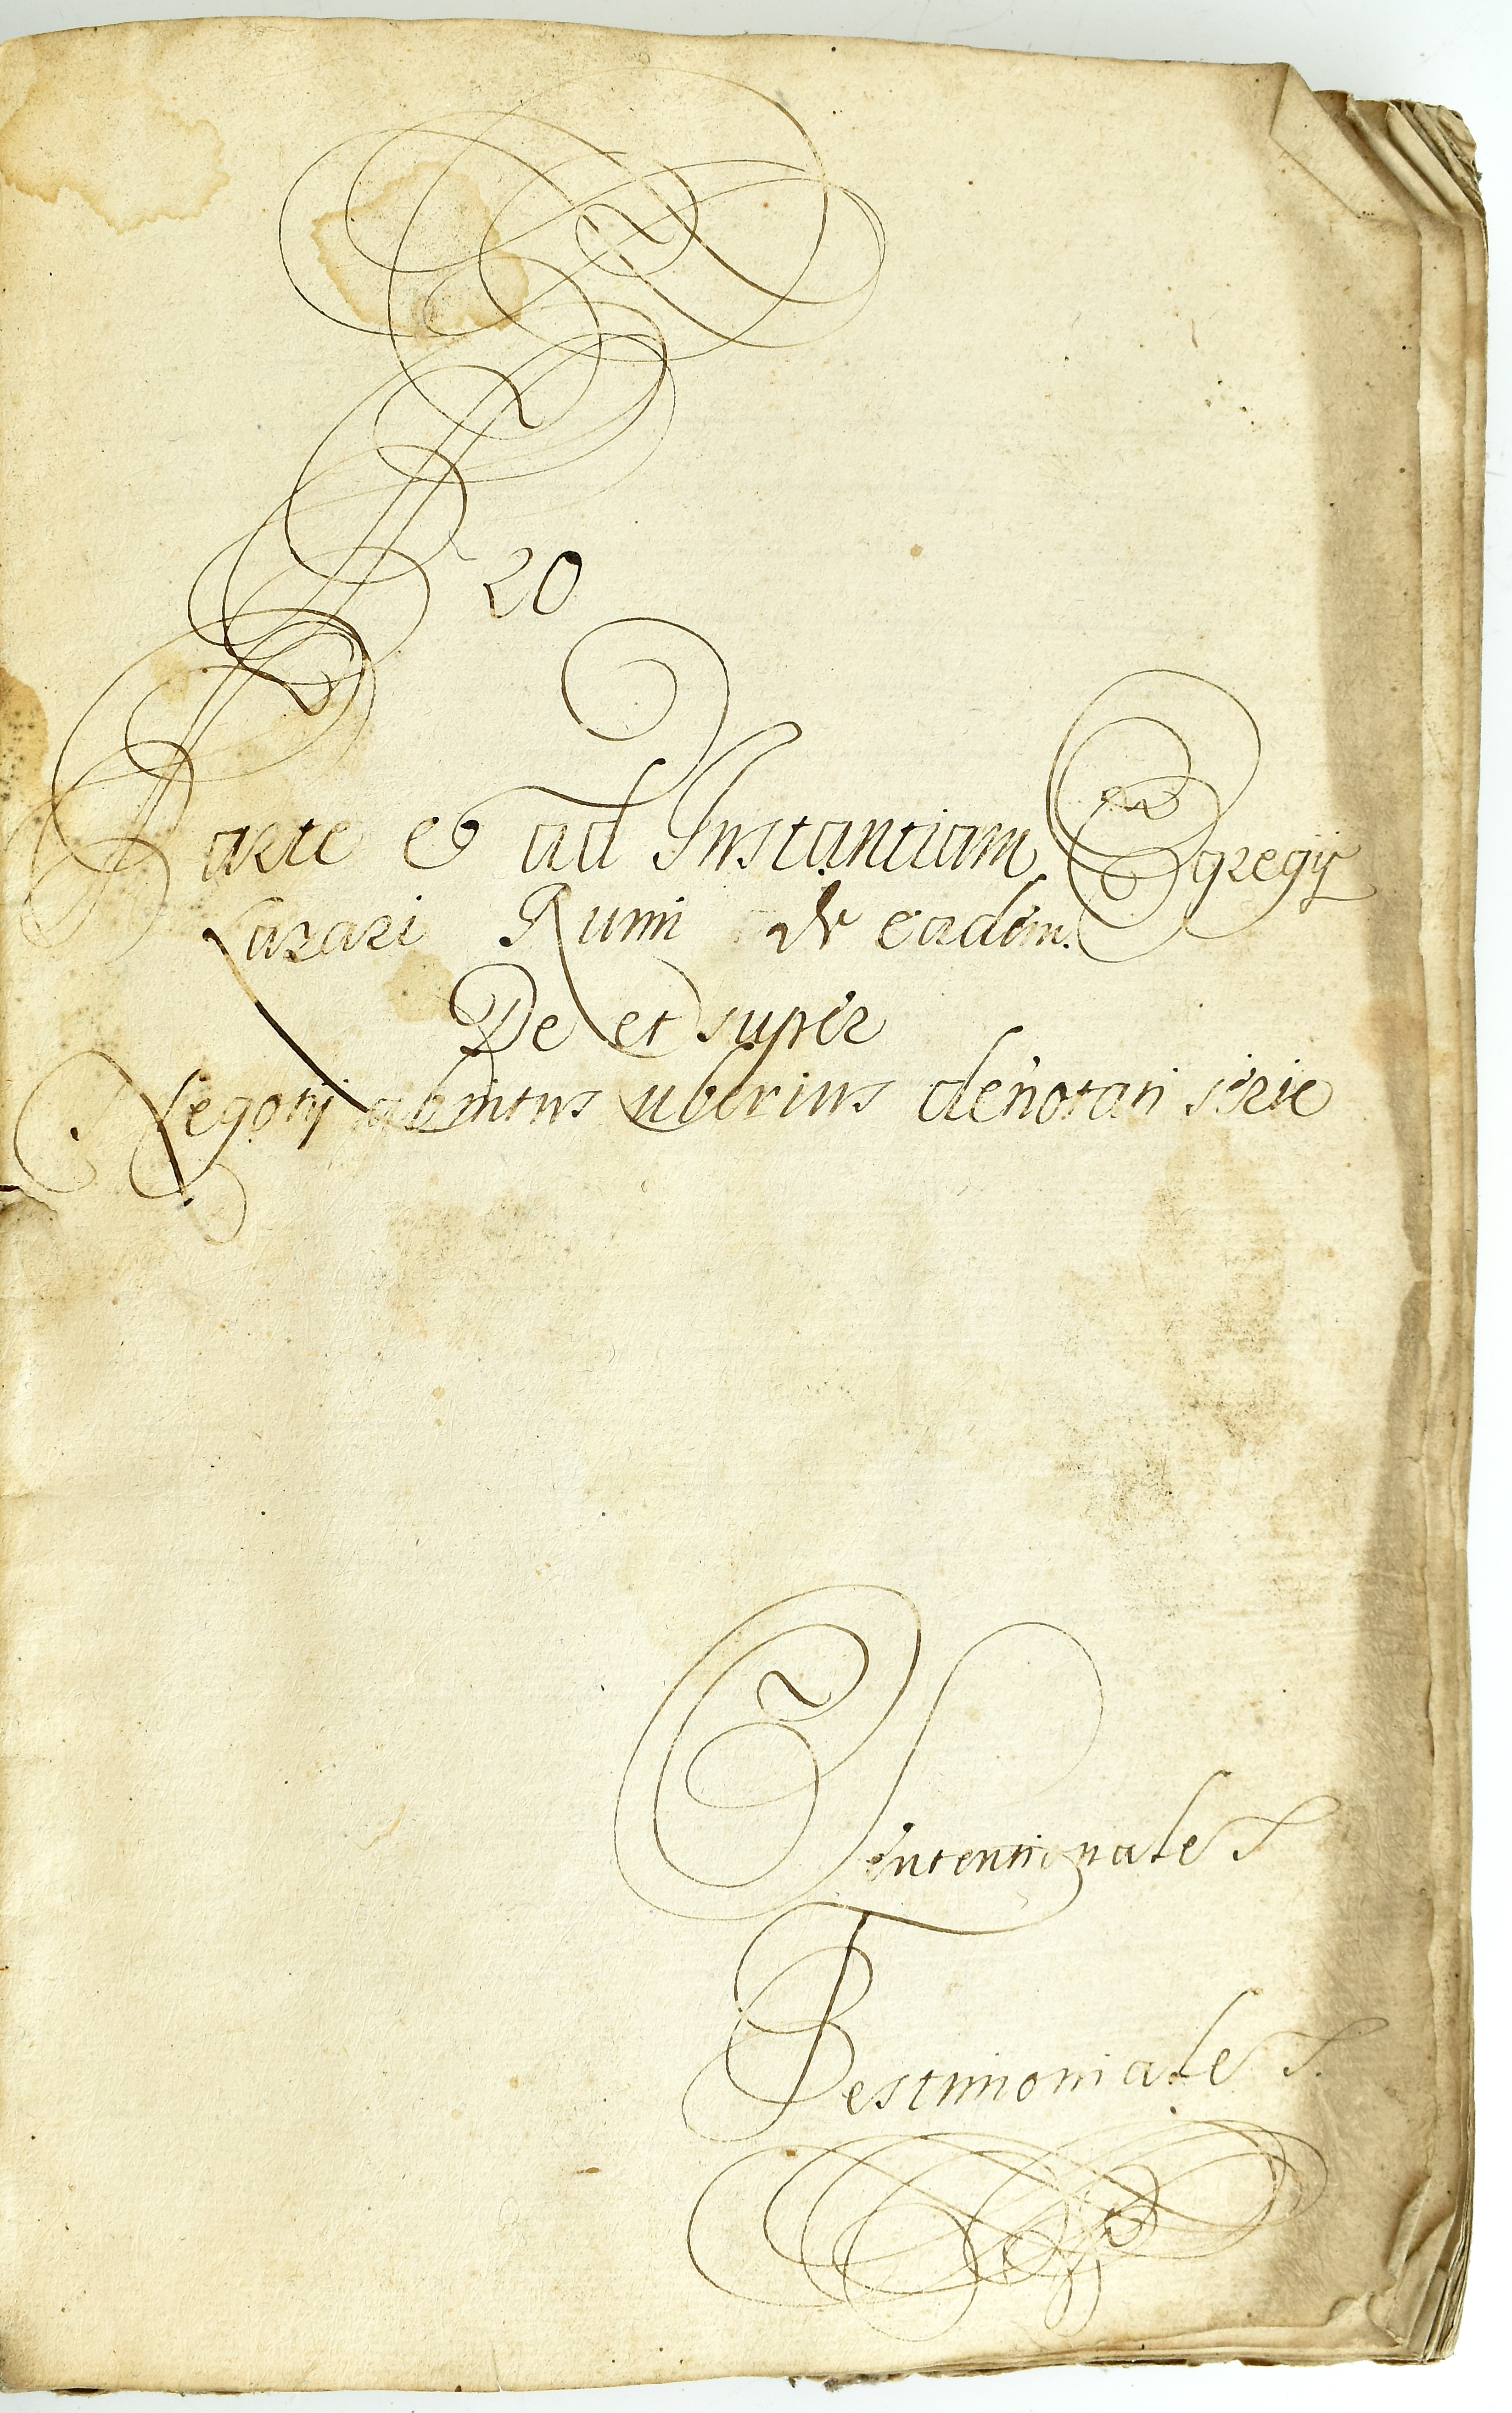 Pro
20
Parte et ad Instantiam Egregij
Lazari Rumi de eadem.
De et super
Negotij ab intus uberius denotati serie
Intentionale s
Testimoniale s.